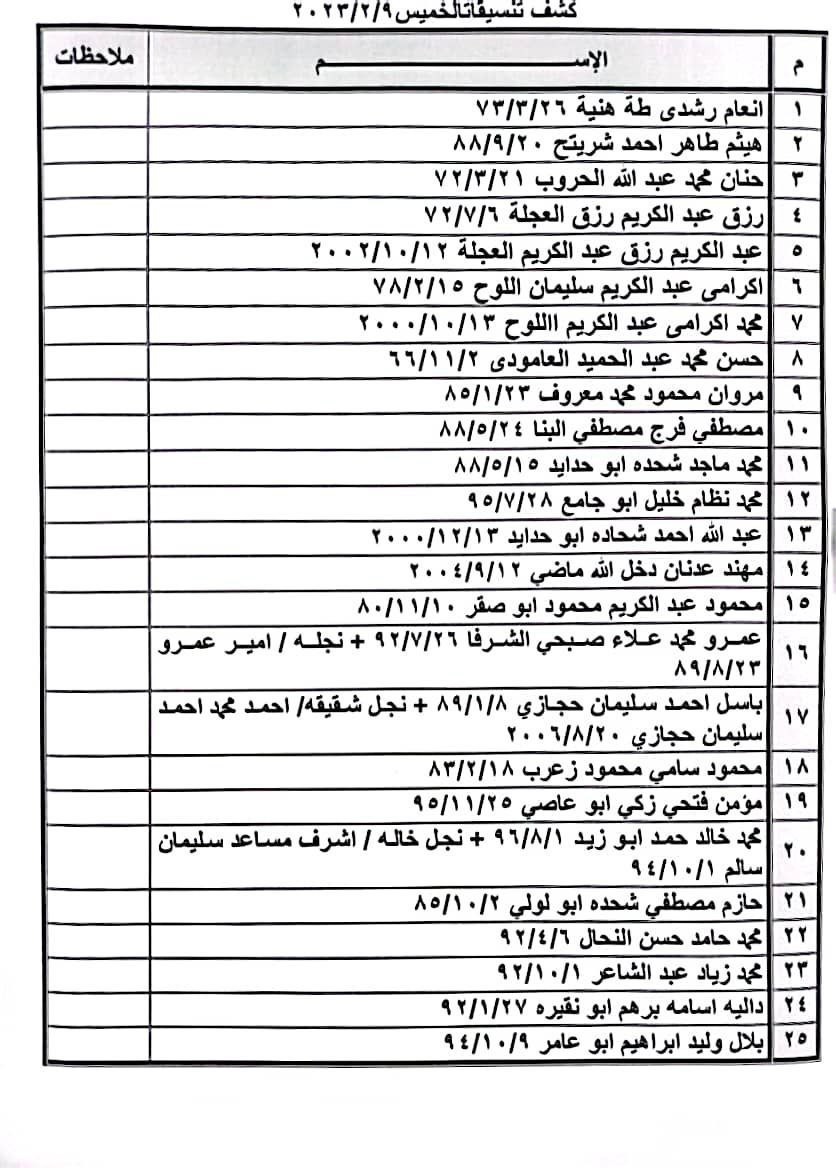 كشف تنسيقات الخميس ٢٠٢٣/٢/٩
م الإســـــــــــم ملاحظات
١ انعام رشدى طة هنية ٧٣/٣/٢٦
٢ هيثم طاهر احمد شريتح ٨٨/٩/٢٠
٣ حنان محمد عبد الله الحروب ٧٢/٣/٢١
٤ رزق عبد الكريم رزق العجلة ٧٢/٧/٦
٥ عبد الكريم رزق عبد الكريم العجلة ٢٠٠٢/١٠/١٢
٦ اكرامى عبد الكريم سليمان اللوح ٧٨/٢/١٥
٧ محمد اكرامى عبد الكريم االلوح ٢٠٠٠/١٠/١٣
٨ حسن محمد عبد الحميد العامودى ٦٦/١١/٢
٩ مروان محمود محمد معروف ٨٥/١/٢٣
١٠ مصطفي فرج مصطفي البنا ٨٨/٥/٢٤
١١ محمد ماجد شحده ابو حدايد ٨٨/٥/١٥
١٢ محمد نظام خليل ابو جامع ٩٥/٧/٢٨
١٣ عبد الله احمد شحاده ابو حدايد ٢٠٠٠/١٢/١٣
١٤ مهند عدنان دخل الله ماضي ٢٠٠٤/٩/١٢
١٥ محمود عبد الكريم محمود ابو صقر ٨٠/١١/١٠
١٦ عمرو محمد علاء صبحي الشرفا ٩٢/٧/٢٦ + نجله / امير عمرو
٨٩/٨/٢٣
١٧ باسل احمد سليمان حجازي ٨٩/١/٨ + نجل شقيقه/ احمد محمد احمد
سليمان حجازي ٢٠٠٦/٨/٢٠
١٨ محمود سامي محمود زعرب ٨٣/٢/١٨
١٩ مؤمن فتحي زكي ابو عاصي ٩٥/١١/٢٥
٢٠ محمد خالد حمد ابو زيد ٩٦/٨/١ + نجل خاله / اشرف مساعد سليمان
سالم ٩٤/١٠/١
٢١ حازم مصطفي شحده ابو لولي ٨٥/١٠/٢
٢٢ محمد حامد حسن النحال ٩٢/٤/٦
٢٣ محمد زياد عبد الشاعر ٩٢/١٠/١
٢٤ داليه اسامه برهم ابو نقيره ٩٢/١/٢٧
٢٥ بلال وليد ابراهيم ابو عامر ٩٤/١٠/٩